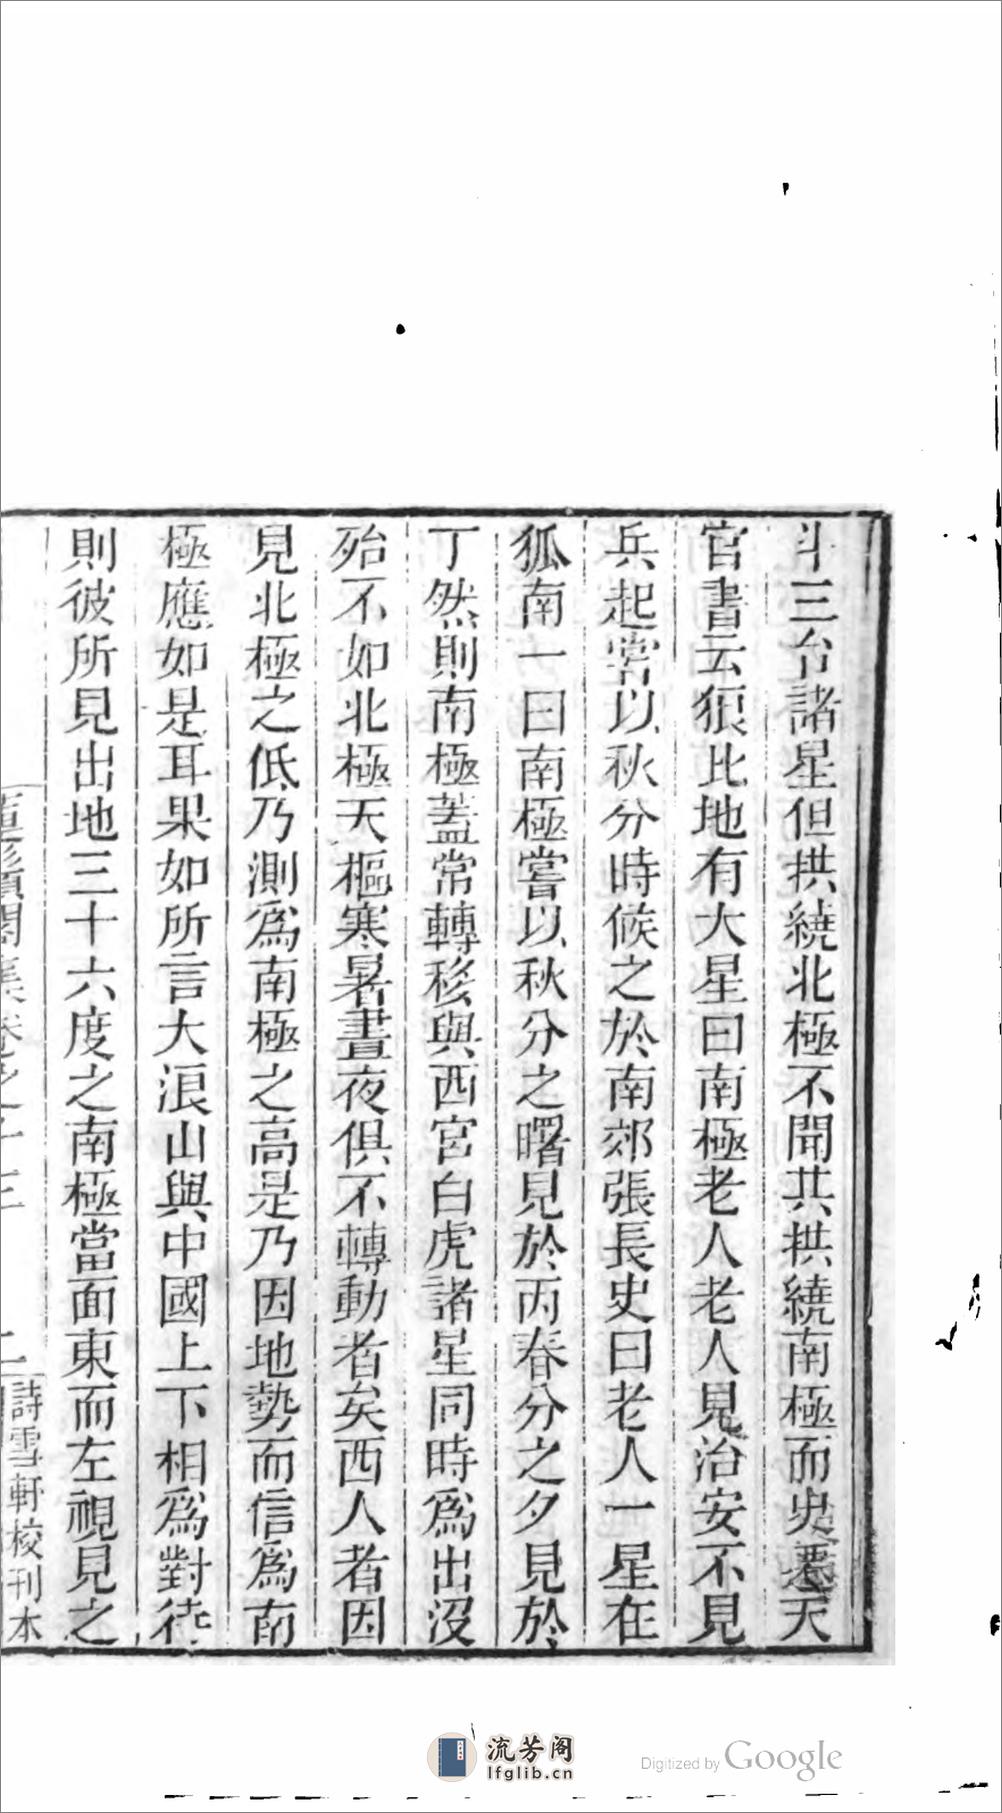 斗三台諸星但拱繞北極不聞共拱繞南極而史遷天
官書云狼比地有大星曰南極老人老人見治安不見
兵起常以秋分時候之於南郊張長史曰老人一星在
狐南一曰南極嘗以秋分之曙見於丙春分之夕見於
丁然則南極蓋常轉移與西宮白虎諸星同時爲出沒
殆不如北極天樞寒暑晝夜俱不轉動者矣西人者因
見北極之低乃測爲南極之高是乃因地勢而信爲南
極應如是耳果如所言大浪山與中國上下相爲對待
則彼所見出地三十六度之南極當面東而左視見之
集卷之十三 二 詩雪軒校刊本
流芳阁
lfglib.cn
Digitized by Google